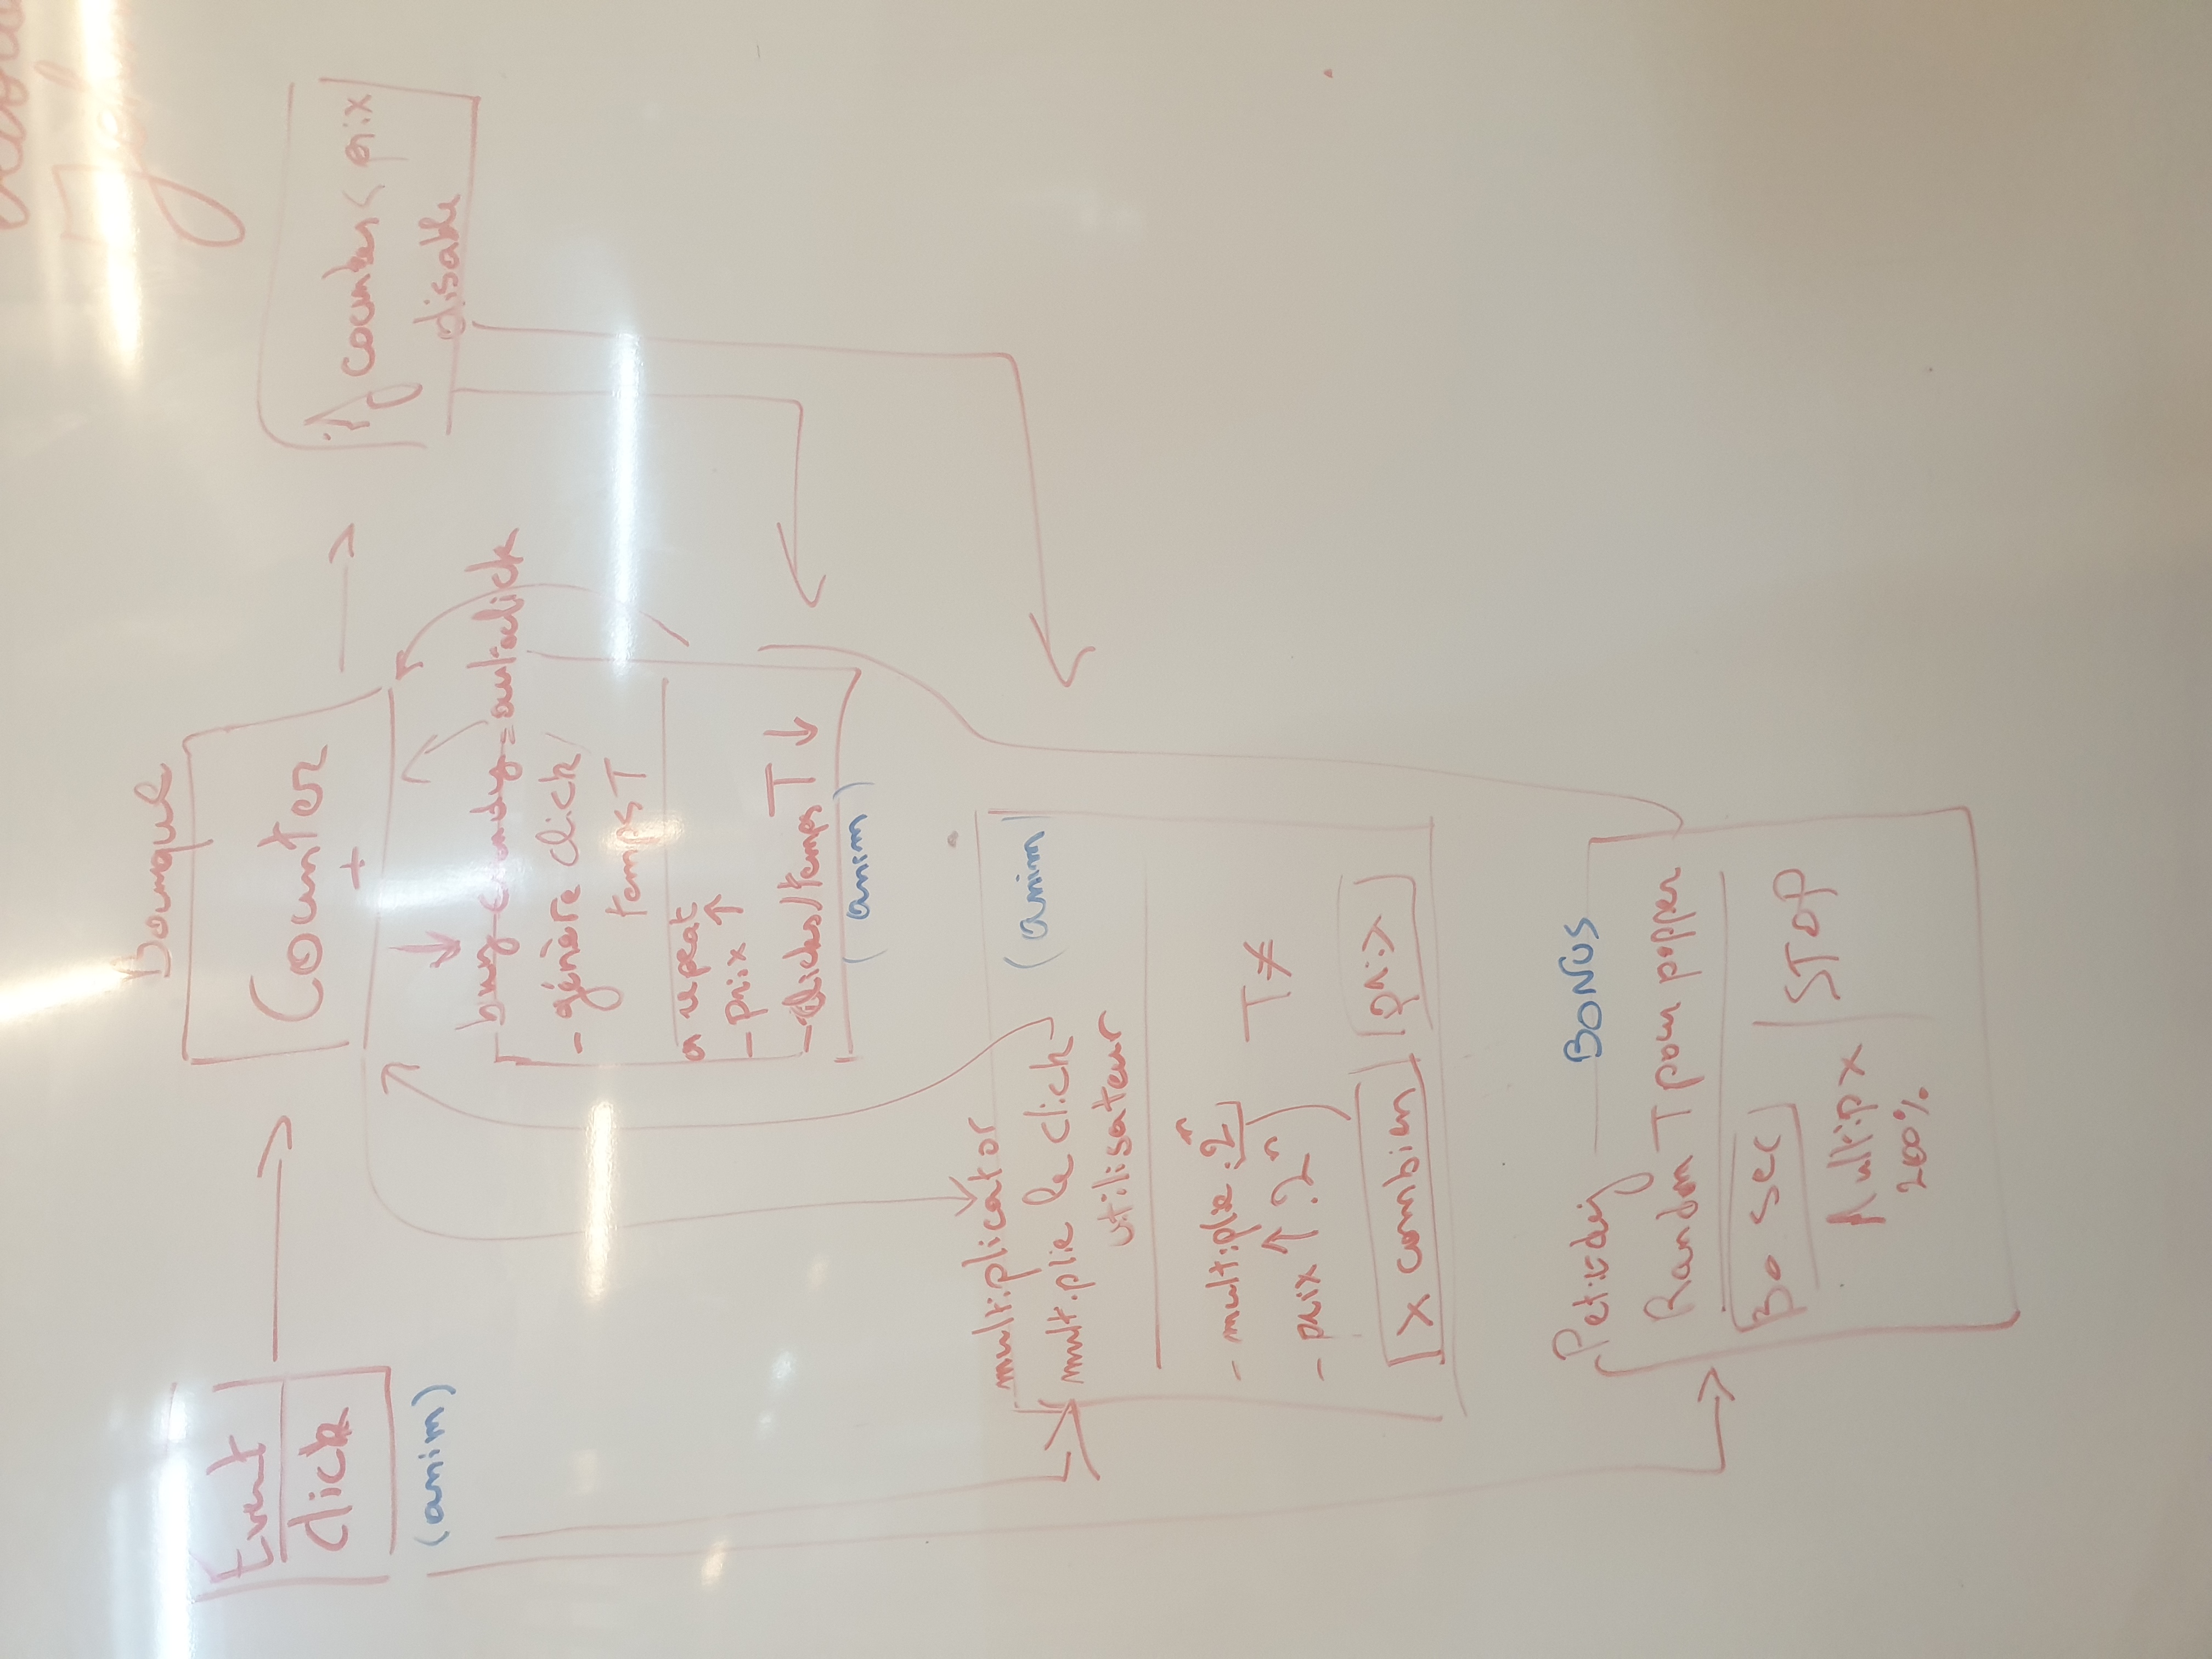 Banque
Event
Click
(anim)
Counter
+
if counter < prix
disable
buy candy = autoclick
- génère click/
temps T
repeat
- prix ↑
- clicks/temps T ↓
(anim)
multiplicator
(anim)
multiplie le click
utilisateur
- multiplie .2ⁿ
T≠
- prix ↑ .2ⁿ
x combien
prix
Petit-dej
BONUS
Random T pour popper
30 sec
STOP
Multip x
200%